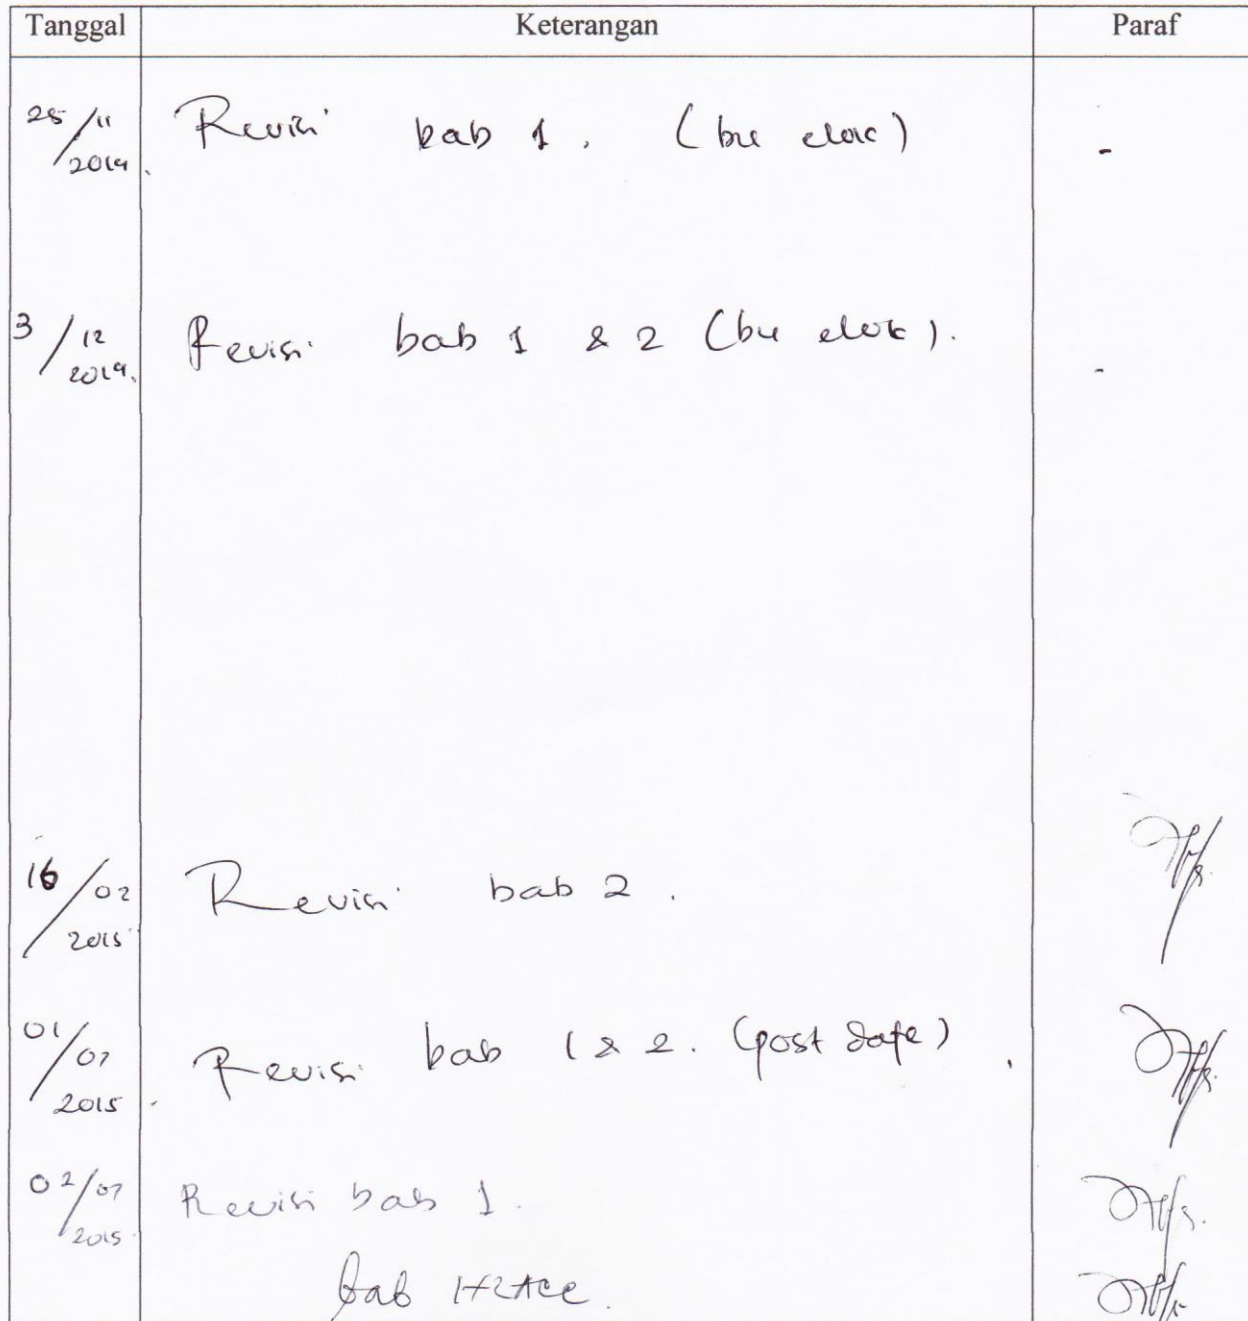 Tanggal Keterangan Paraf
25/11 2014. Revisi bab 1. (bu elok) -
3/12 2014. Revisi bab 1 & 2 (bu elok). -
16/02 2015 Revisi bab 2.
01/07 2015. Revisi bab 1 & 2. (post date).
02/07 2015 Revisi bab 1.
bab 1+2 Acc.